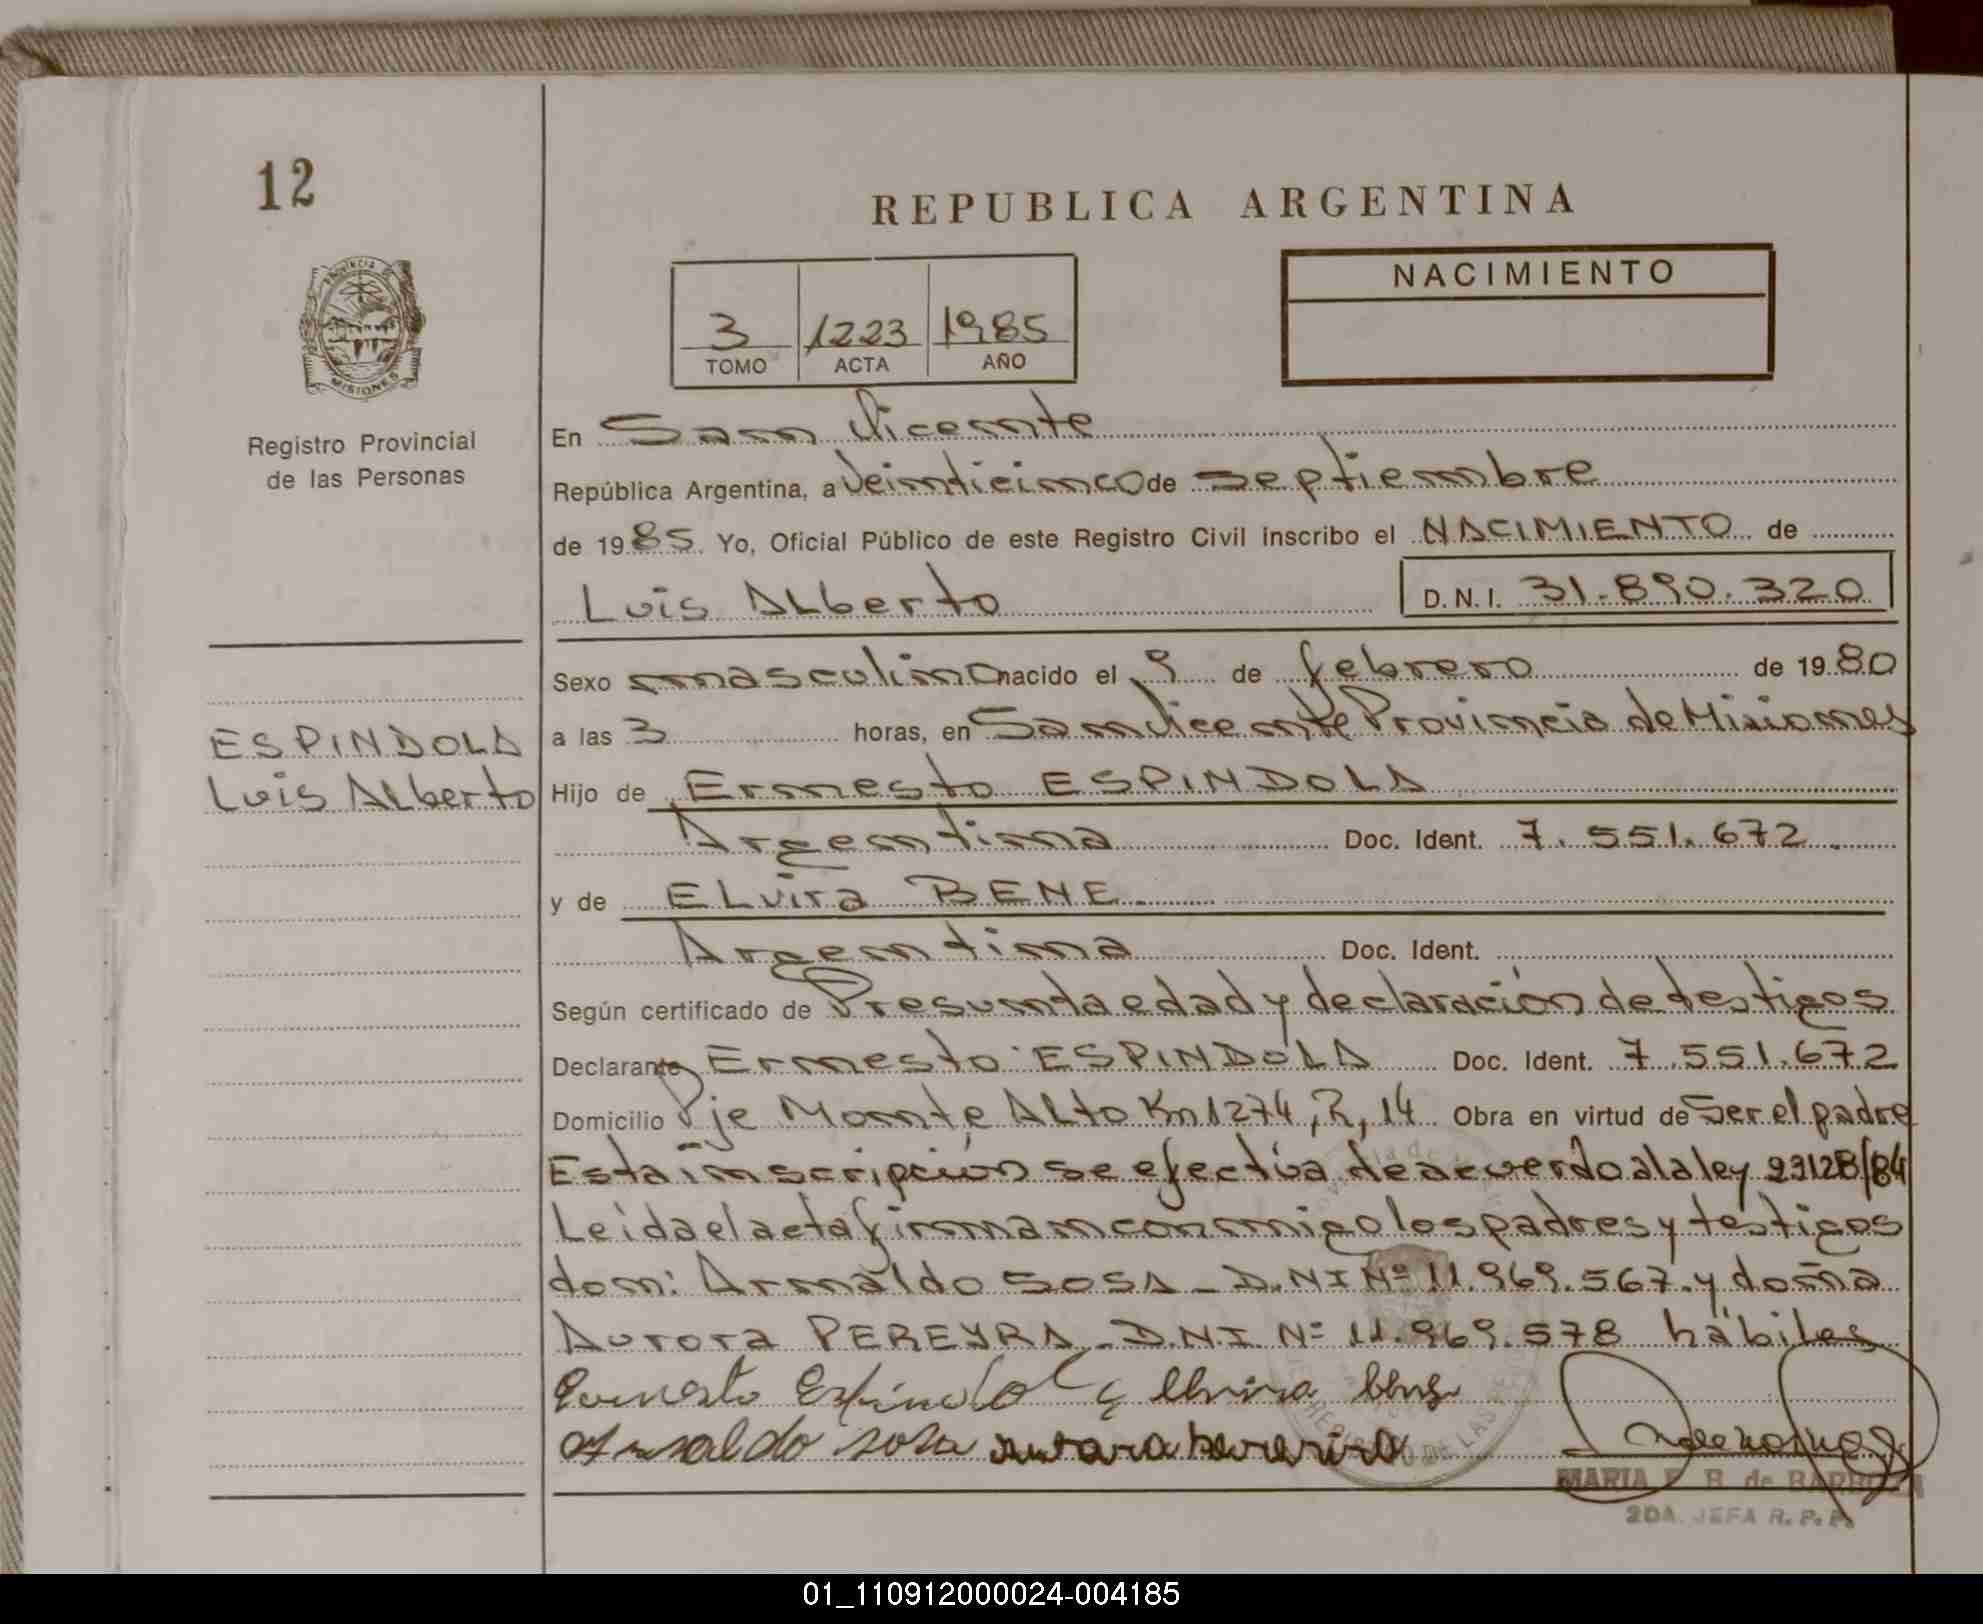 12
REPUBLICA ARGENTINA
NACIMIENTO
3 1223 1985
TOMO ACTA AÑO
PROVINCIA DE
MISIONES
Registro Provincial
de las Personas
En San Vicente
República Argentina, a Veinticinco de septiembre
de 1985. Yo, Oficial Público de este Registro Civil inscribo el NACIMIENTO de
Luis Alberto D.N.I. 31.890.320
Sexo masculino nacido el 9 de febrero de 1980
ESPINDOLA
Luis Alberto
a las 3 horas, en San Vicente Provincia de Misiones
Hijo de Ernesto ESPINDOLA
Argentina Doc. Ident. 7.551.672.
y de ELvira BENE.
Argentina Doc. Ident.
Según certificado de Presunta edad y declaración de testigos
Declarante Ernesto ESPINDOLA Doc. Ident. 7.551.672
Domicilio Pje Monte ALto Km 1274, R, 14 Obra en virtud de Ser el padre
Esta inscripción se efectúa de acuerdo a la ley 23128/84
Leida el acta firman conmigo los padres y testigos
don: Arnaldo SOSA - D.NI Nº 11.969.567. y doña
Aurora PEREYRA - D.N.I. Nº 11.969.578 hábiles
Ernesto Espindola Elvira
Arnaldo sosa aurora pereira
MARIA E. B. de BARBOZA
2DA. JEFA R. P. P.
01_110912000024-004185